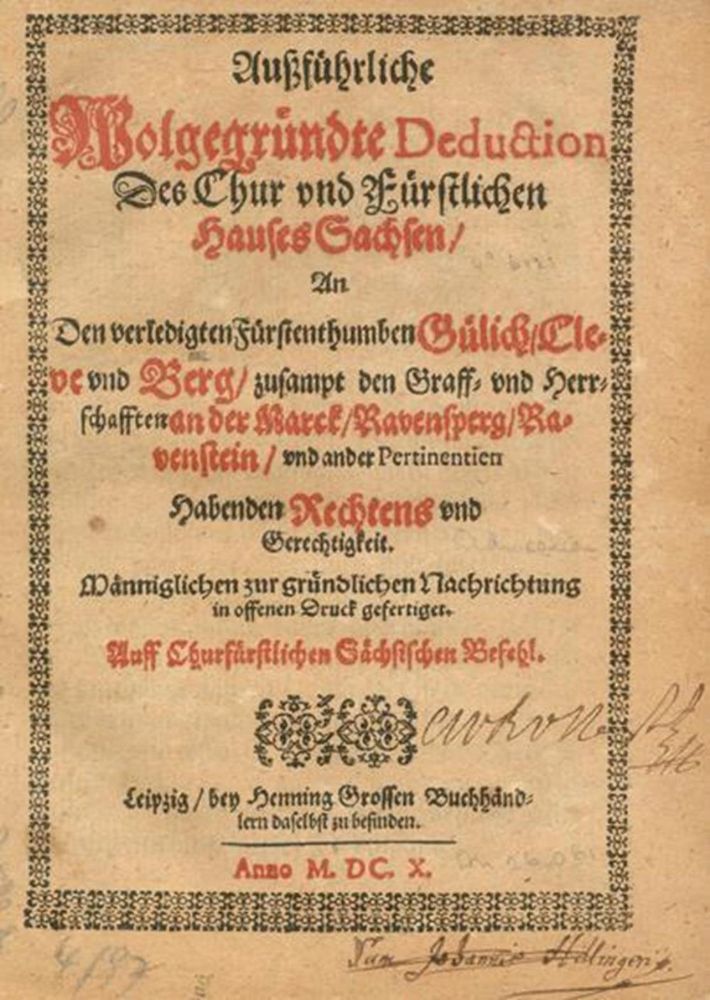 Außführliche
Wolgegründte Deduction
Des Chur vnd Fürstlichen
Hauses Sachsen/
An
Den verledigten Fürstenthumben Gülich/Cle-
ve vnd Berg/ zusampt den Graff- vnd Herr-
schafften an der Marck/Ravensperg/Ra-
venstein/ vnd ander Pertinentien
Habenden Rechtens vnd
Gerechtigkeit.
Männiglichen zur gründlichen Nachrichtung
in offenen Druck gefertiget.
Auff Churfürstlichen Sächsischen Befehl.
Leipzig/ bey Henning Grossen Buchhänd-
lern daselbst zu befinden.
Anno M. DC. X.
Johannis